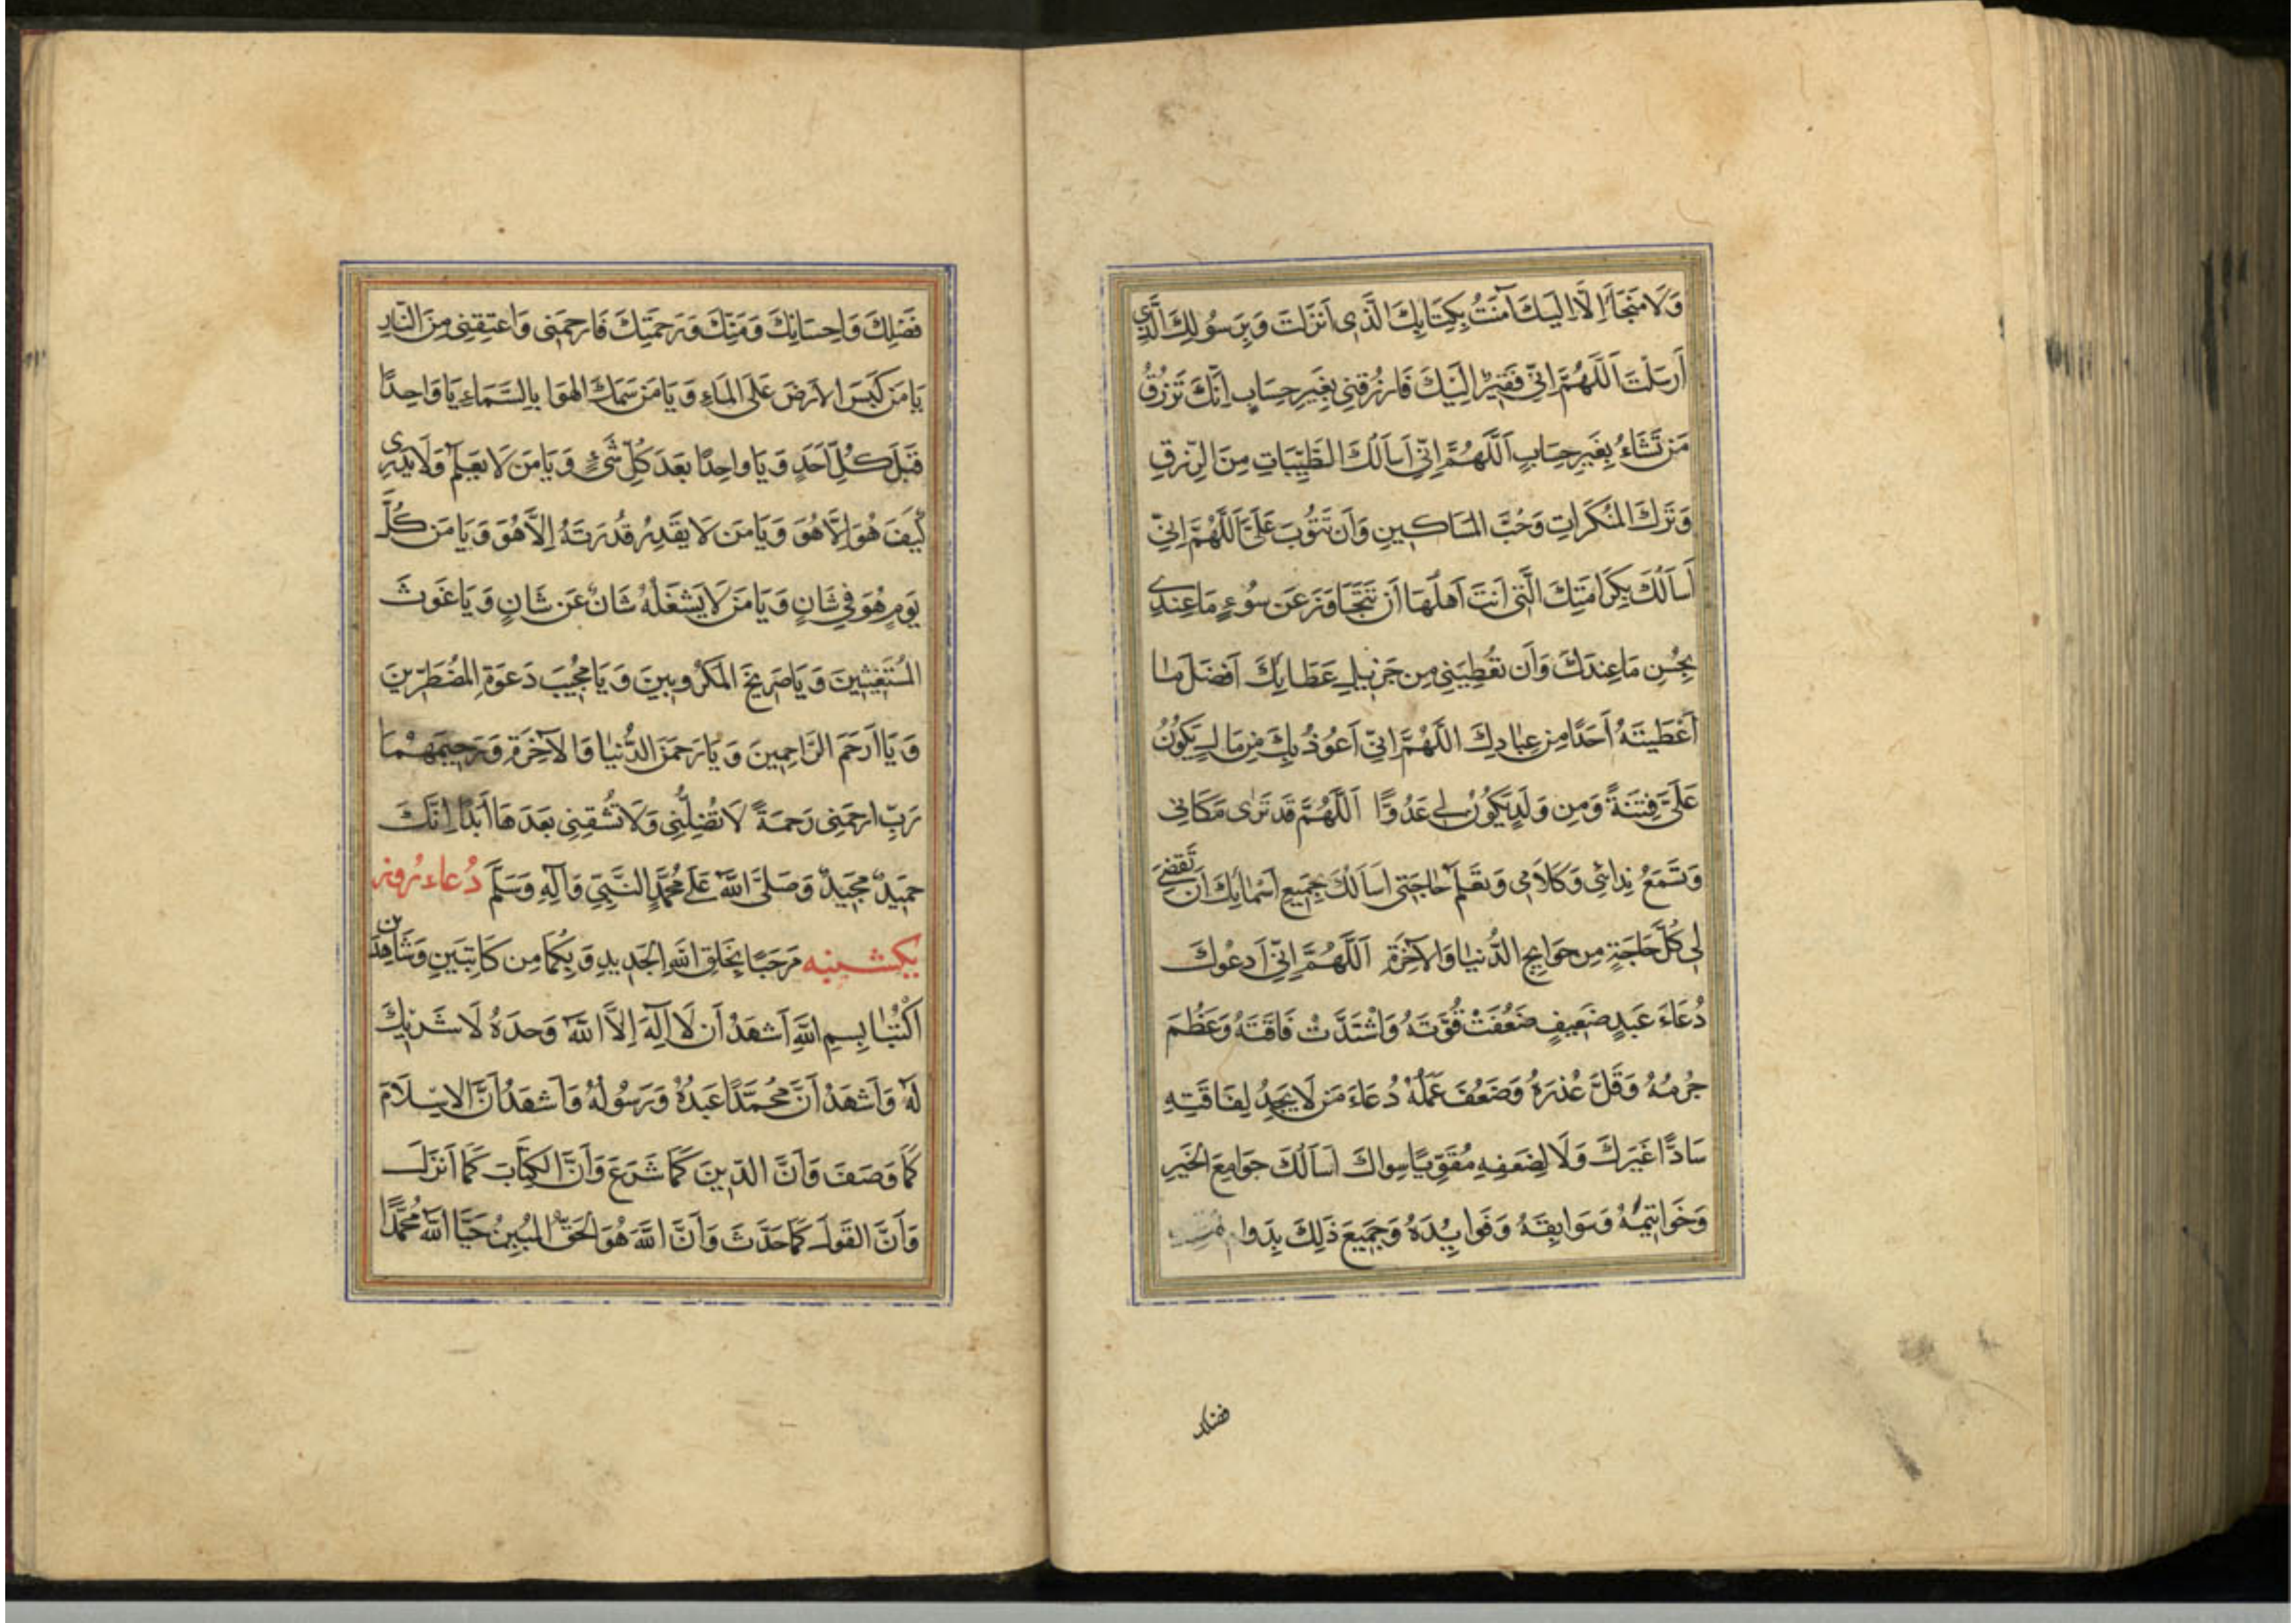 وَلَا مَنْجَأَ اِلَّا اِلَيْكَ آمَنْتُ بِكِتَابِكَ الَّذِى اَنْزَلْتَ وَبِرَسُولِكَ الَّذِى
اَرْسَلْتَ اَللَّهُمَّ اِنِّى فَقِيرٌ اِلَيْكَ فَارْزُقْنِى بِغَيْرِ حِسَابٍ اِنَّكَ تَرْزُقُ
مَنْ تَشَاءُ بِغَيْرِ حِسَابٍ اَللَّهُمَّ اِنِّى اَسْاَلُكَ الطَّيِّبَاتِ مِنَ الرِّزْقِ
وَتَرْكَ المُنْكَرَاتِ وَحُبَّ المَسَاكِينِ وَاَنْ تَتُوبَ عَلَىَّ اَللَّهُمَّ اِنِّى
اَسْاَلُكَ بِكَرَامَتِكَ الَّتِى اَنْتَ اَهْلُهَا اَنْ تَتَجَاوَزَ عَنْ سُوءِ مَا عِنْدِى
بِحُسْنِ مَا عِنْدَكَ وَاَنْ تُعْطِيَنِى مِنْ جَزِيلِ عَطَائِكَ اَفْضَلَ مَا
اَعْطَيْتَهُ اَحَدًا مِنْ عِبَادِكَ اللَّهُمَّ اِنِّى اَعُوذُ بِكَ مِنْ مَالٍ يَكُونُ
عَلَىَّ فِتْنَةً وَمِنْ وَلَدٍ يَكُونُ لِى عَدُوًّا اَللَّهُمَّ قَدْ تَرٰى مَكَانِى
وَتَسْمَعُ نِدَائِى وَكَلَامِى وَتَعْلَمُ حَاجَتِى اَسْاَلُكَ بِجَمِيعِ اَسْمَائِكَ اَنْ تَقْضِىَ
لِى كُلَّ حَاجَةٍ مِنْ حَوَائِجِ الدُّنْيَا وَالْآخِرَةِ اَللَّهُمَّ اِنِّى اَدْعُوكَ
دُعَاءَ عَبْدٍ ضَعِيفٍ ضَعُفَتْ قُوَّتُهُ وَاشْتَدَّتْ فَاقَتُهُ وَعَظُمَ
جُرْمُهُ وَقَلَّ عُذْرُهُ وَضَعُفَ عَمَلُهُ دُعَاءَ مَنْ لَا يَجِدُ لِفَاقَتِهِ
سَادًّا غَيْرَكَ وَلَا لِضَعْفِهِ مُقَوِّيًا سِوَاكَ اَسْاَلُكَ جَوَامِعَ الْخَيْرِ
وَخَوَاتِيمَهُ وَسَوَابِقَهُ وَفَوَائِدَهُ وَجَمِيعَ ذَلِكَ بِدَوَامِ
فضلك
فَضْلِكَ وَاِحْسَانِكَ وَمَنِّكَ وَرَحْمَتِكَ فَارْحَمْنِى وَاعْتِقْنِى مِنَ النَّارِ
يَا مَنْ كَبَسَ الْاَرْضَ عَلَى المَاءِ وَيَا مَنْ سَمَكَ الهَوَا بِالسَّمَاءِ يَا وَاحِدًا
قَبْلَ كُلِّ اَحَدٍ وَيَا وَاحِدًا بَعْدَ كُلِّ شَىْءٍ وَيَا مَنْ لَا يَعْلَمُ وَلَا يَدْرِى
كَيْفَ هُوَ اِلَّا هُوَ وَيَا مَنْ لَا يَقْدِرُ قُدْرَتَهُ اِلَّا هُوَ وَيَا مَنْ كُلَّ
يَوْمٍ هُوَ فِى شَانٍ وَيَا مَنْ لَا يَشْغَلُهُ شَانٌ عَنْ شَانٍ وَيَا غَوْثَ
المُسْتَغِيثِينَ وَيَا صَرِيخَ المَكْرُوبِينَ وَيَا مُجِيبَ دَعْوَةِ المُضْطَرِّينَ
وَيَا اَرْحَمَ الرَّاحِمِينَ وَيَا رَحْمٰنَ الدُّنْيَا وَالْآخِرَةِ وَرَحِيمَهُمَا
رَبِّ ارْحَمْنِى رَحْمَةً لَا تُضِلُّنِى وَلَا تُشْقِنِى بَعْدَهَا اَبَدًا اِنَّكَ
حَمِيدٌ مَجِيدٌ وَصَلَّى اللهُ عَلَى مُحَمَّدٍ النَّبِىِّ وَآلِهِ وَسَلَّمَ دُعَاء رُوز
يكشنبه مَرْحَبًا بِخَلْقِ اللهِ الْجَدِيدِ وَبِكُمَا مِنْ كَاتِبَيْنِ وَشَاهِدَيْنِ
اُكْتُبَا بِسْمِ اللهِ اَشْهَدُ اَنْ لَا اِلَهَ اِلَّا اللهُ وَحْدَهُ لَا شَرِيكَ
لَهُ وَاَشْهَدُ اَنَّ مُحَمَّدًا عَبْدُهُ وَرَسُولُهُ وَاَشْهَدُ اَنَّ الْاِسْلَامَ
كَمَا وَصَفَ وَاَنَّ الدِّينَ كَمَا شَرَعَ وَاَنَّ الْكِتَابَ كَمَا اَنْزَلَ
وَاَنَّ القَوْلَ كَمَا حَدَّثَ وَاَنَّ اللهَ هُوَ الْحَقُّ المُبِينُ حَيَّا اللهُ مُحَمَّدًا